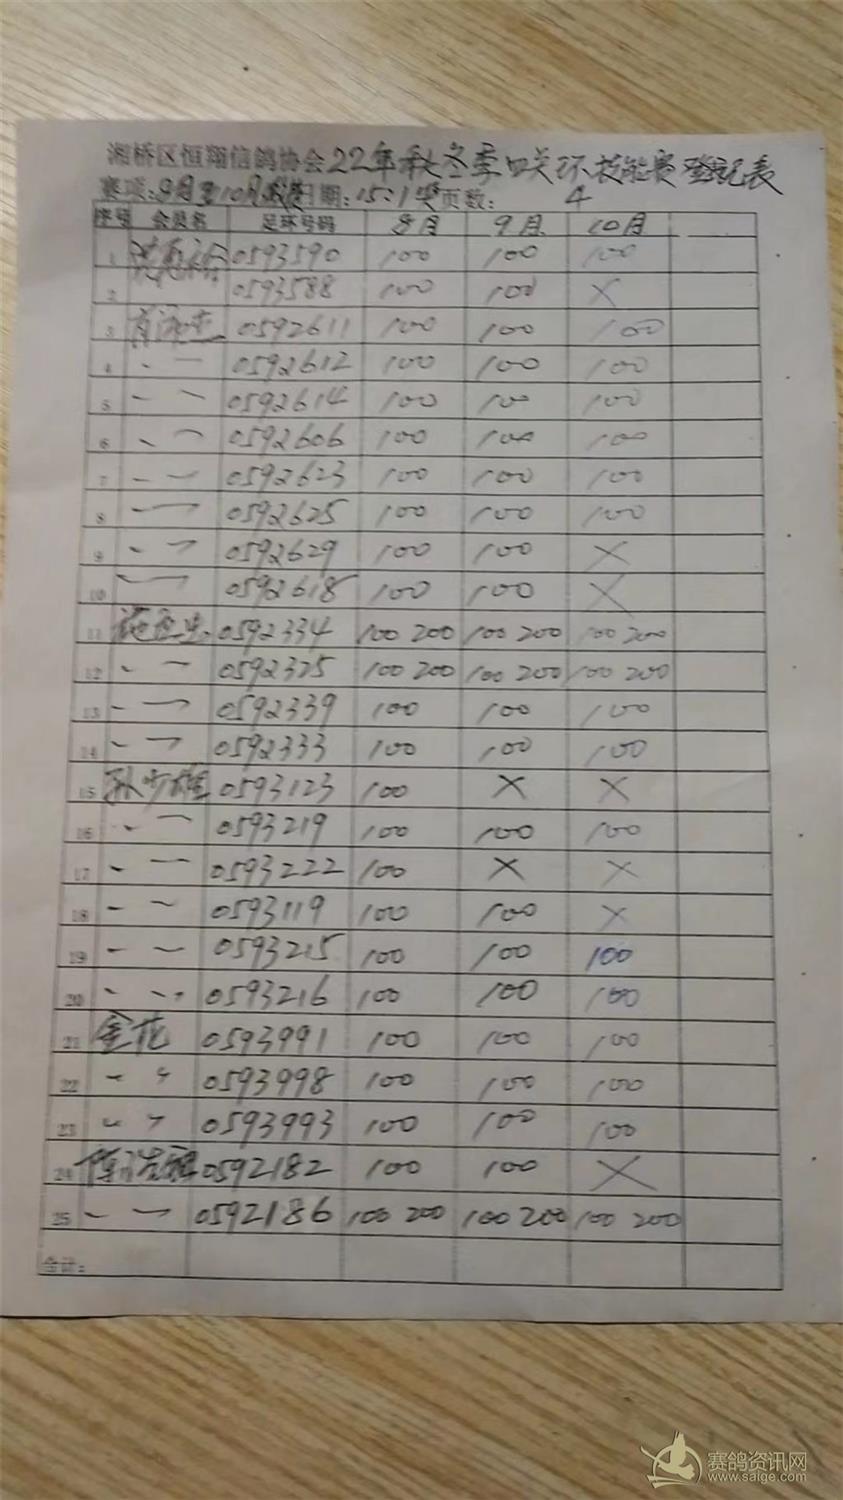 湘桥区恒翔信鸽协会22年秋冬季四关环技能赛登记表
赛项:8月至10月 日期:15:1奖 页数: 4
序号 会员名 足环号码 8月 9月 10月
1 0593590 100 100 100
2 0593588 100 100 X
3 0592611 100 100 100
4 〃 0592612 100 100 100
5 〃 0592614 100 100 100
6 〃 0592606 100 100 100
7 〃 0592623 100 100 100
8 〃 0592625 100 100 100
9 〃 0592629 100 100 X
10 〃 0592618 100 100 X
11 0592334 100 200 100 200 100 200
12 〃 0592325 100 200 100 200 100 200
13 〃 0592339 100 100 100
14 〃 0592333 100 100 100
15 孙少雄 0593123 100 X X
16 〃 0593219 100 100 100
17 〃 0593222 100 X X
18 〃 0593119 100 100 X
19 〃 0593215 100 100 100
20 〃 0593216 100 100 100
21 金花 0593991 100 100 100
22 〃 0593998 100 100 100
23 〃 0593993 100 100 100
24 0592182 100 100 X
25 〃 0592186 100 200 100 200 100 200
合计:
赛鸽资讯网
www.saige.com